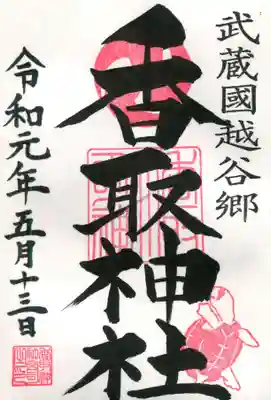 武蔵國越谷郷
香取神社
令和元年五月十三日